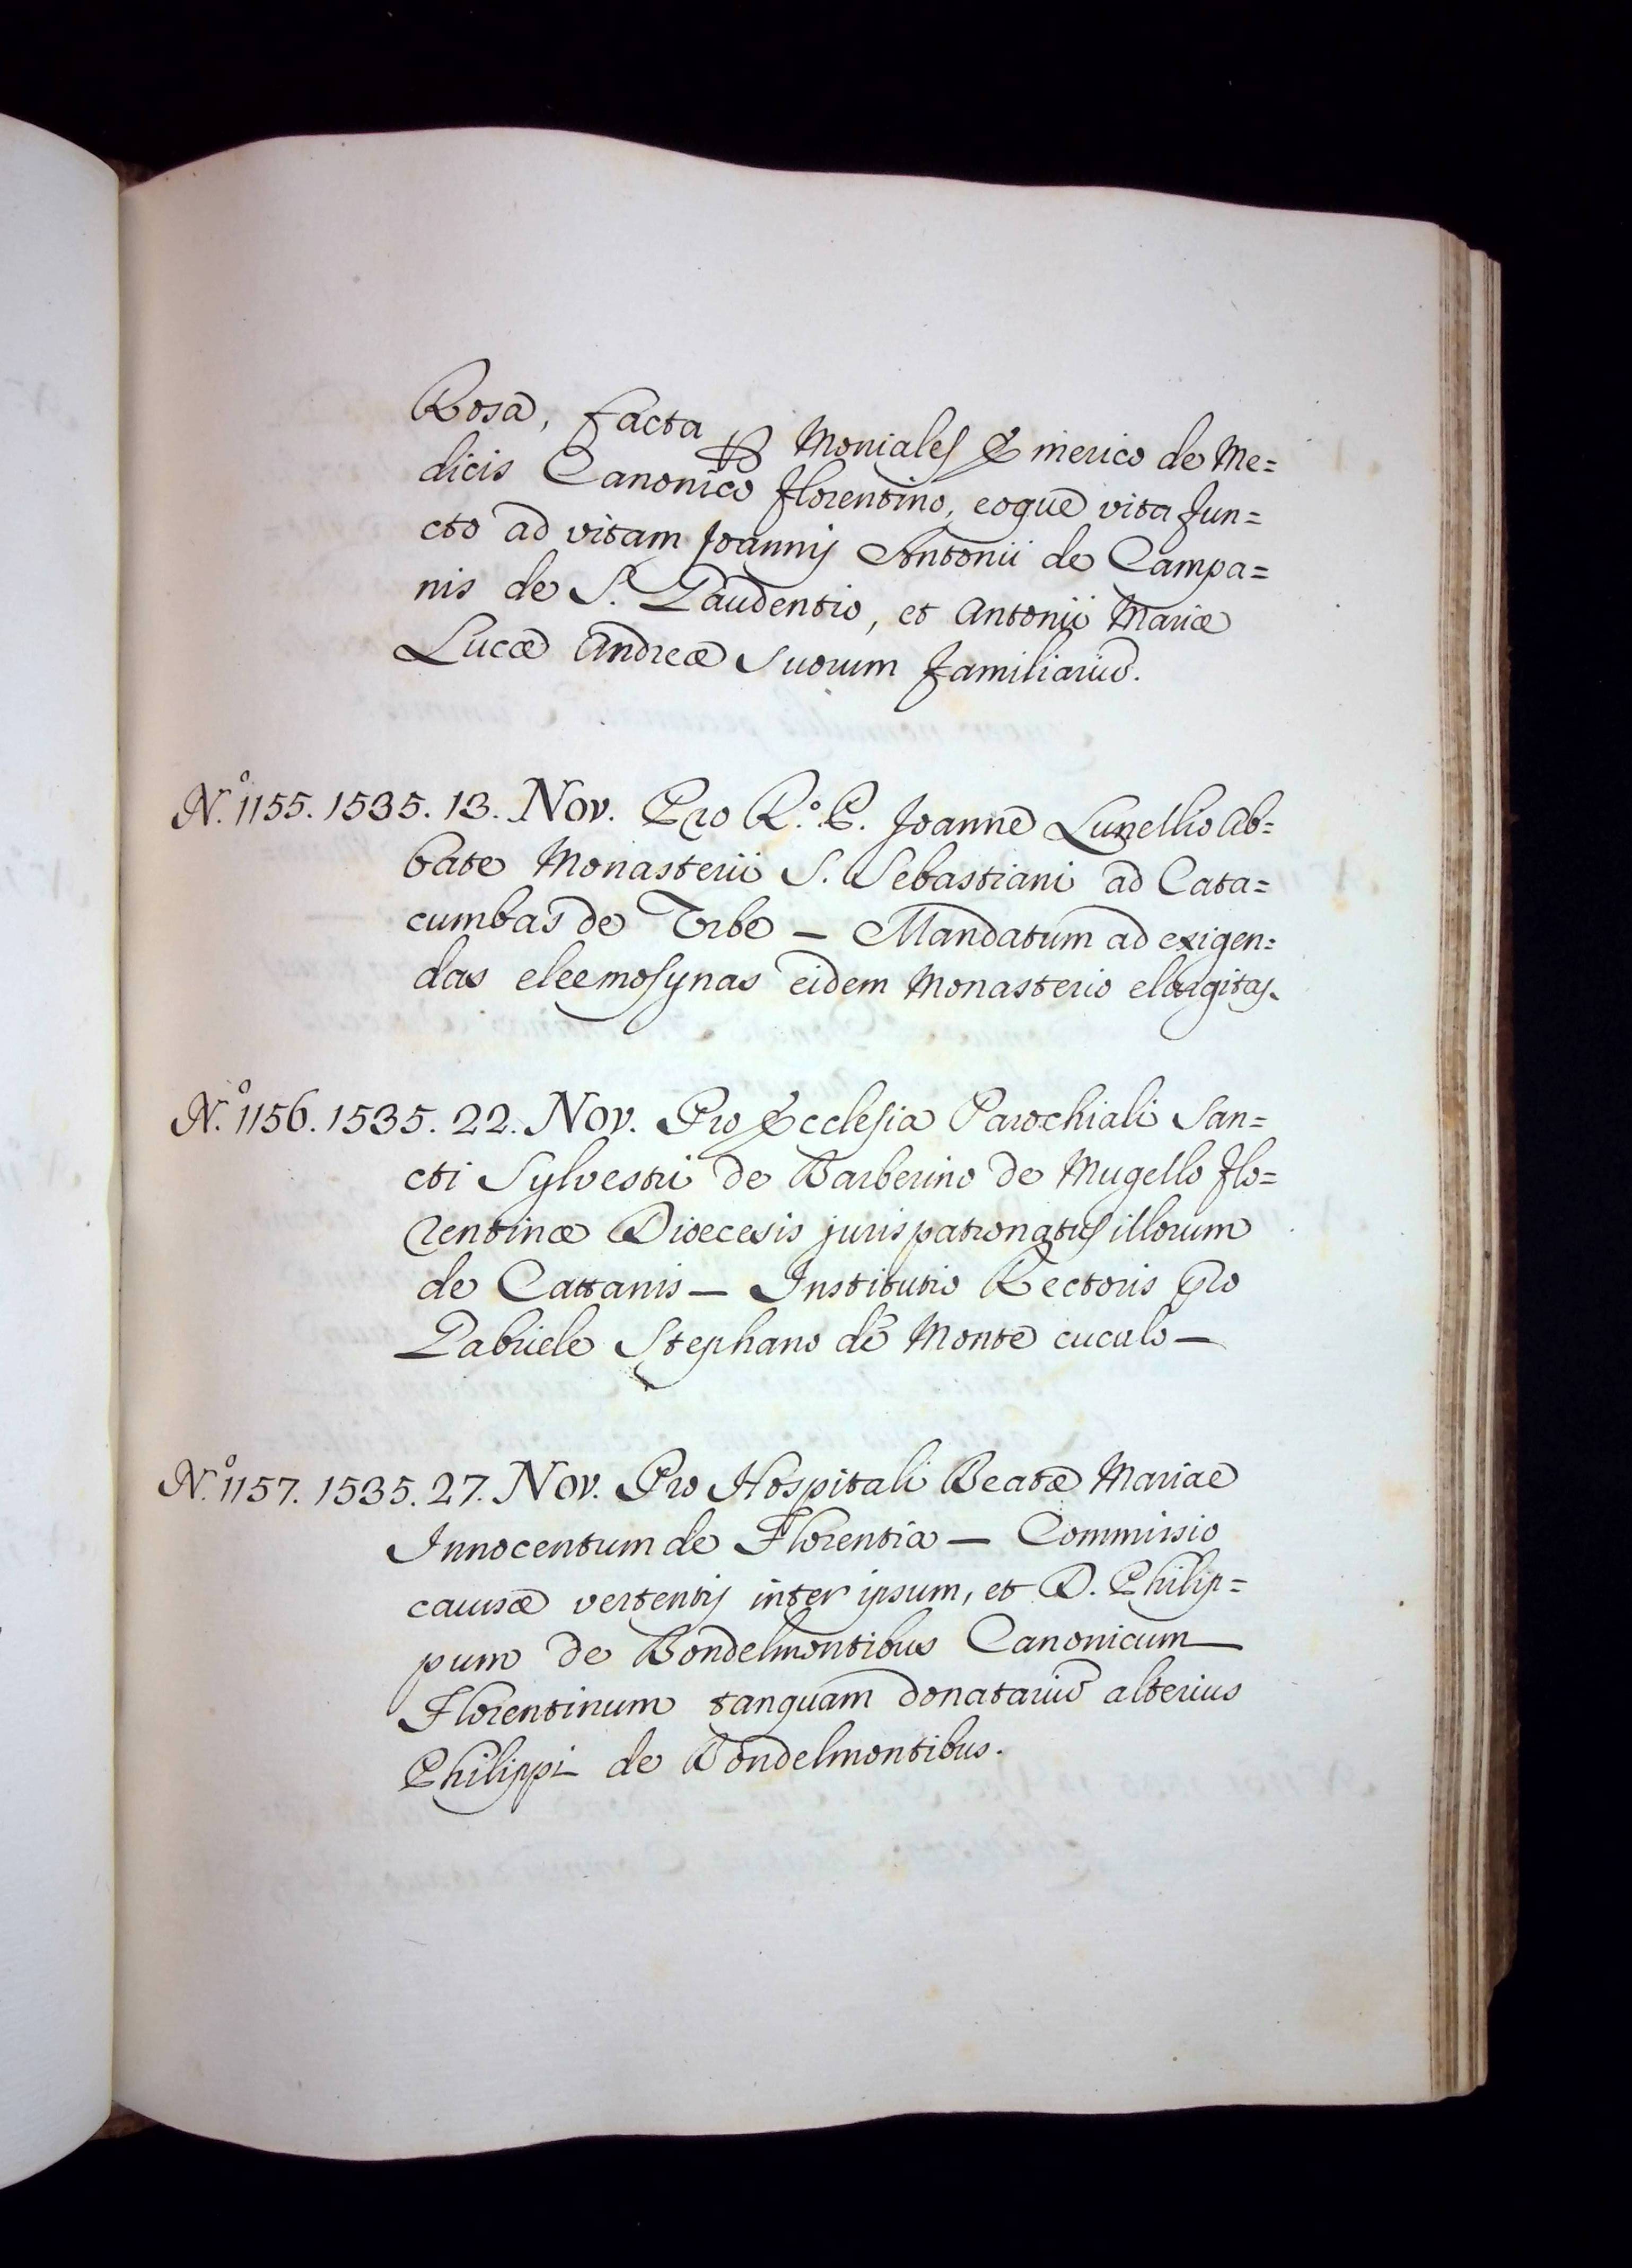 Rosa, facta ꝑ Moniales Emerico de Me=
dicis Canonico Florentino, eoque vita fun=
cto ad vitam Joannis Antonii de Campa=
nis de S. Gaudentio, et Antonii Mariæ
Lucæ Andreæ Suorum familiariũ.
N.º 1155. 1535. 13. Nov. Pro R.º P. Joanne Lunellio Ab=
bate Monasterii S. Sebastiani ad Cata=
cumbas de Urbe — Mandatum ad exigen=
das eleemosynas eidem Monasterio elargitas.
N.º 1156. 1535. 22. Nov. Pro Ecclesia Parochiali San=
cti Sylvestri de Barberino de Mugello Flo=
rentinæ Dioecesis jurispatronatus illorum
de Cattanis — Institutio Rectoris pro
Gabriele Stephano de Monte cuculo —
N.º 1157. 1535. 27. Nov. Pro Hospitali Beatæ Mariae
Innocentum de Florentia — Commissio
causæ vertentis inter ipsum, et D. Philip=
pum de Bondelmontibus Canonicum
Florentinum tanquam donatariũ alterius
Philippi de Bondelmontibus.